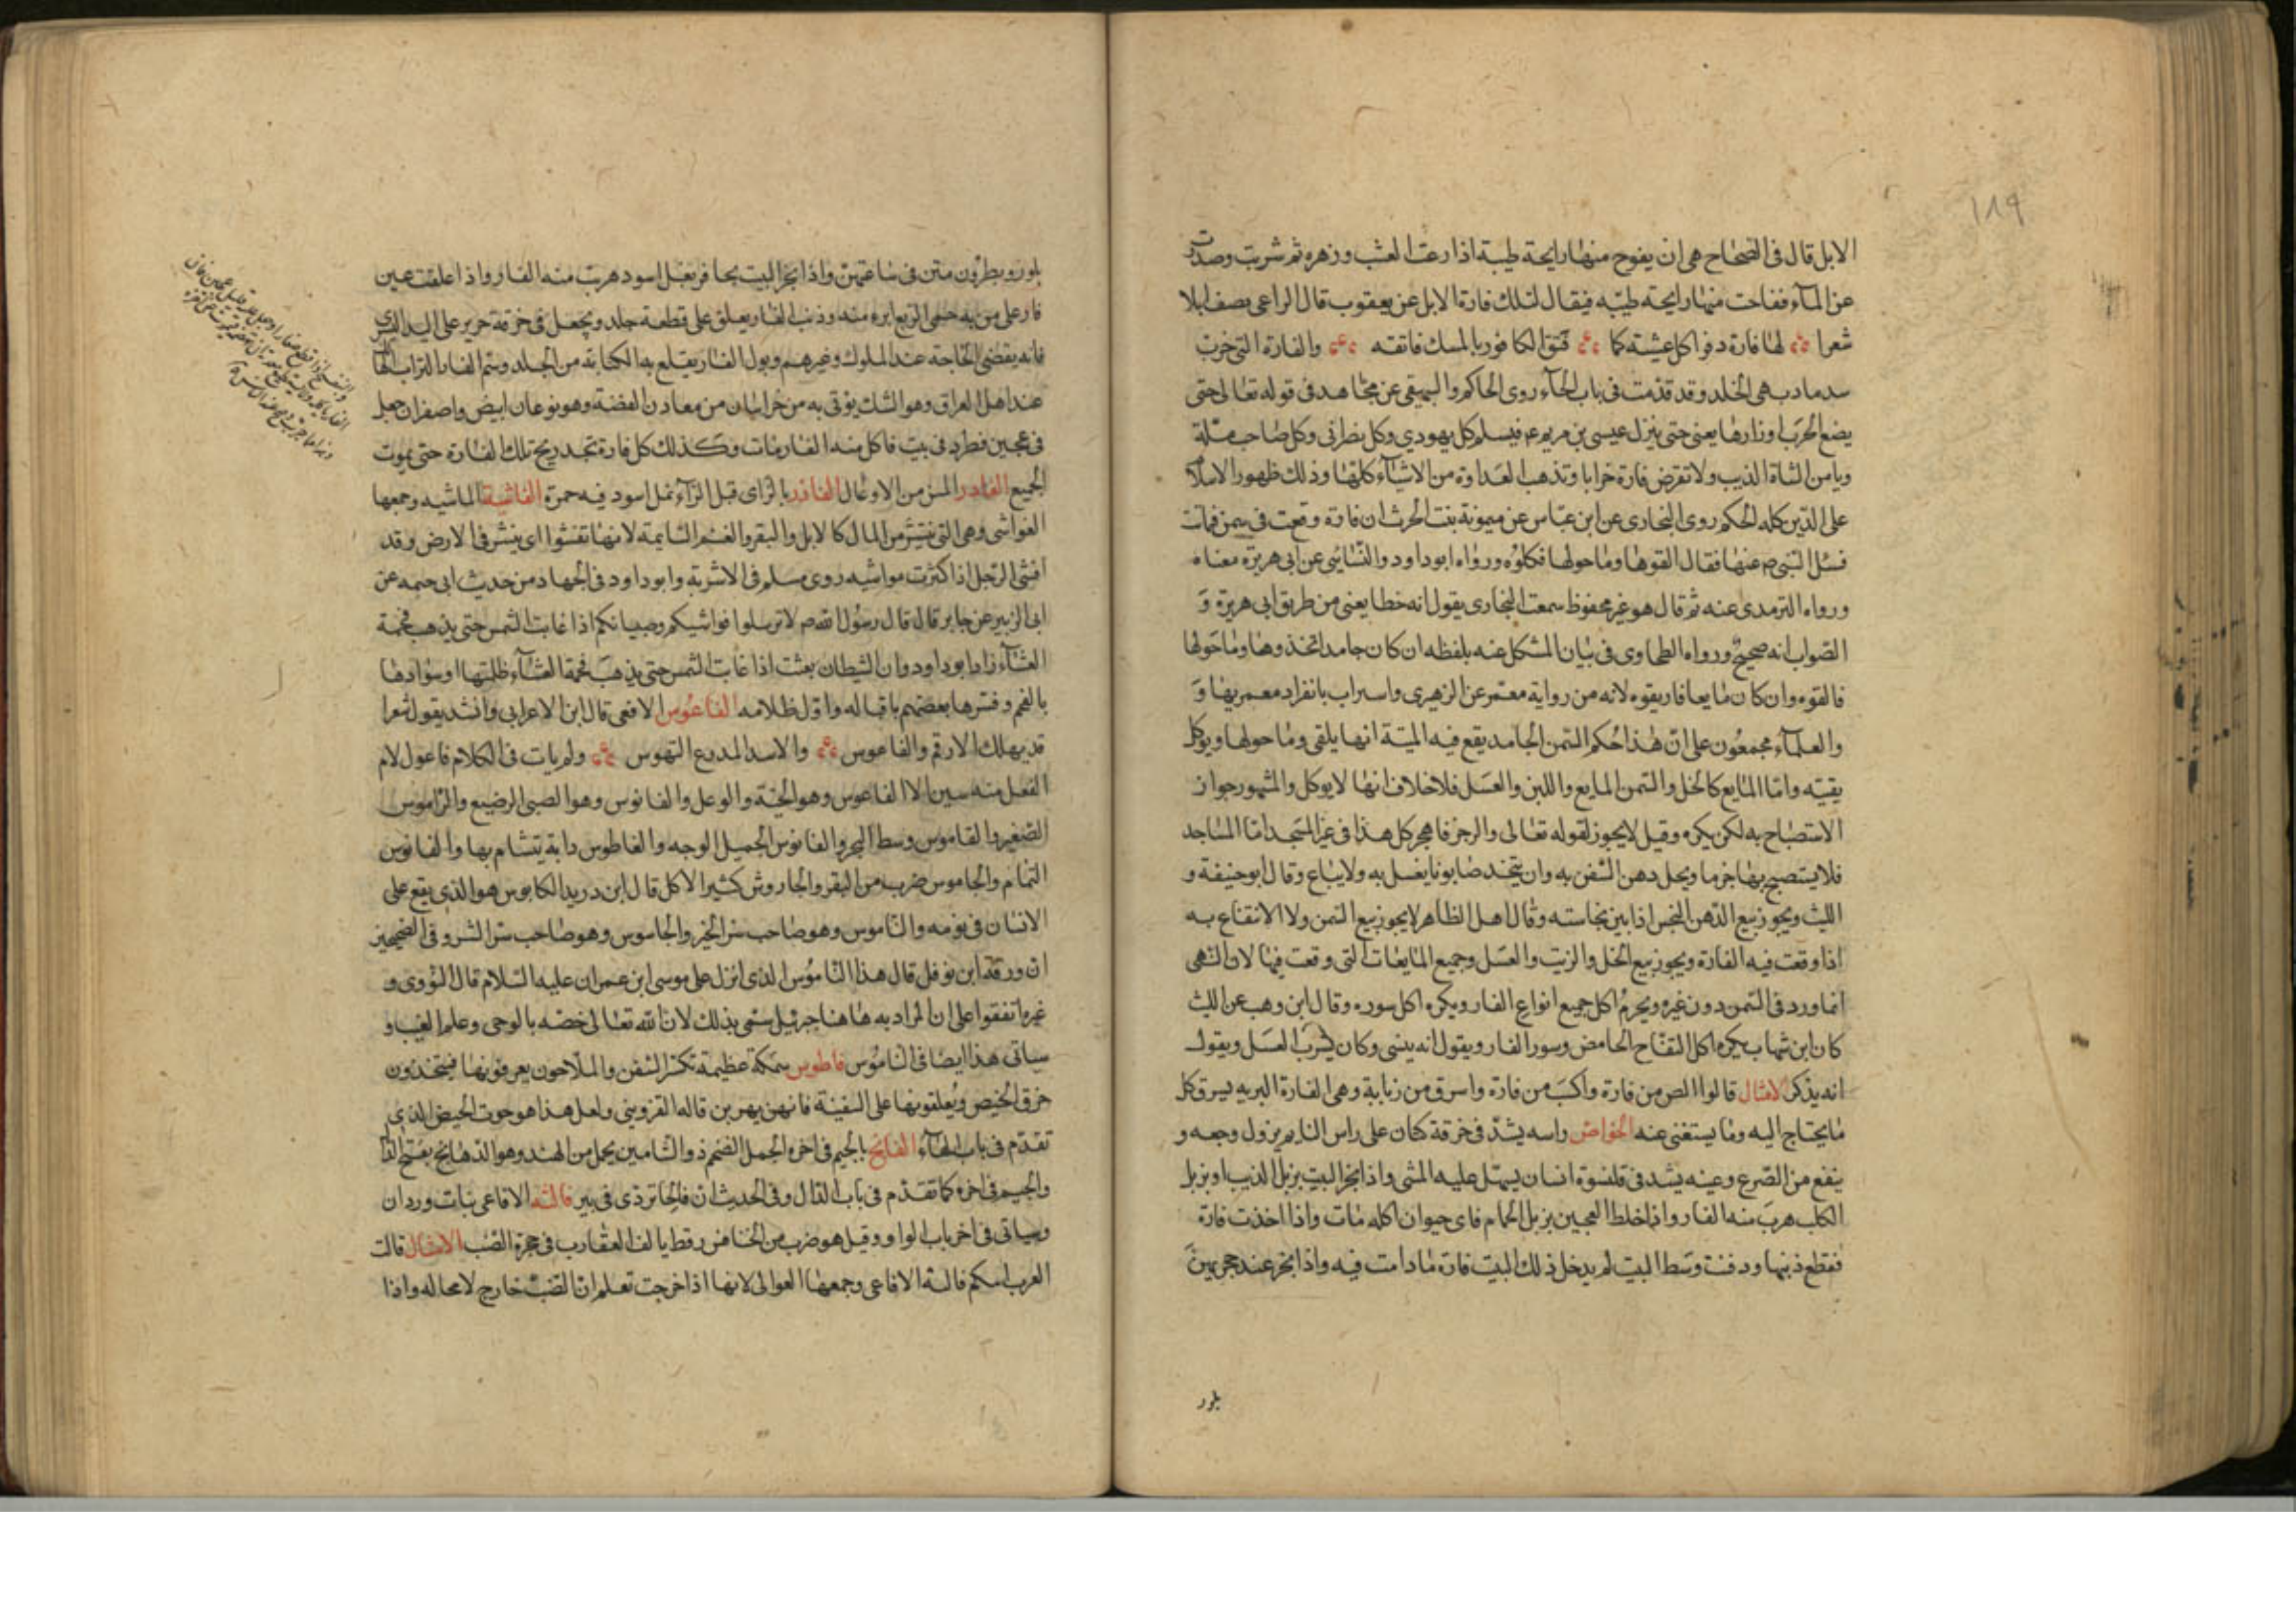 ١٨٩
الابل قال فى الصحاح هى ان يفوح منها رايحة طيبة اذا رعت العشب وزهره ثم شربت وصدرت
عن المآء ففاحت منها رايحة طيبه فيقال لتلك فارة الابل عن يعقوب قال الراعى يصف ابلا
شعرا لها فارة دفرا كل عشيته كما فتق الكافور بالمسك فاتقه والفارة التى خربت
سد مارب هى الخلد وقد تقدمت فى باب الخآء روى الحاكم والبيهقى عن مجاهد فى قوله تعالى حتى
يضع الحرب اوزارها يعنى حتى ينزل عيسى بن مريم ع م فيسلم كل يهودي وكل نصرانى وكل صاحب ملة
ويامن الشاة الذيب ولا تقرض فارة خرابا وتذهب العداوة من الاشيآء كلها وذلك ظهور الاسلام
على الدين كله الحكم روى البخارى عن ابن عباس عن ميمونة بنت الحرث ان فارة وقعت فى سمن فماتت
فسئل النبى ص عنها فقال القوها وما حولها فكلوه ورواه ابو داود والنسائى عن ابى هريرة معناه
ورواه الترمدى عنه ثم قال هو غير محفوظ سمعت البخارى يقول انه خطا يعنى من طريق ابى هريرة و
الصواب انه صحيح ورواه الطحاوى فى بيان المشكل عنه بلفظه ان كان جامدا فخذوها وما حولها
فالقوه وان كان مايعا فاريقوه لانه من رواية معتمر عن الزهرى واستراب بانفراد معمر بها و
والعلمآء مجمعون على ان هذا حكم السمن الجامد يقع فيه الميتة انها يلقى وما حولها ويوكل
بقيته واما المايع كالخل والسمن المايع واللبن والعسل فلا خلاف انها لا يوكل والمشهور جواز
الاستصباح به لكن يكره وقيل لا يجوز لقوله تعالى والرجز فاهجر كل هذا فى غير المسجد اما المساجد
فلا يستصبح بها جزما ويحل دهن السفن به وان يتخذ صابونا يغسل به ولا يباع وقال ابو حنيفة و
الليث ويجوز بيع الدهن النجس اذا بين نجاسته وقال اهل الظاهر لا يجوز بيع السمن ولا الانتفاع به
اذا وقعت فيه الفارة ويجوز بيع الخل والزيت والعسل وجميع المايعات التى وقعت فيها لان النهى
انما ورد فى السمن دون غيره ويحرم اكل جميع انواع الفار ويكره اكل سوره وقال ابن وهب عن الليث
كان ابن شهاب يكره اكل التفاح الحامض وسور الفار ويقول انه ينسى وكان يشرب العسل ويقول
انه يذكر الامثال قالوا الص من فارة واكسب من فارة واسرق من زبابة وهى الفارة البريه يسرق كل
ما يحتاج اليه وما يستغنى عنه الخواص راسه يشد فى خرقة كتان على راس النايم يزول وجعه و
ينفع من الصرع وعينه يشد فى قلنسوة انسان يسهل عليه المشى واذا بخر البيت بزبل الذيب او بزبل
الكلب هرب منه الفار واذا خلط العجين بزبل الحمام فاى حيوان اكله مات واذا اخذت فارة
فقطع ذنبها ودفنت وسط البيت لم يدخل ذلك البيت فارة ما دامت فيه واذا بخر عند جحرهن
بلور
بلور وبطرون متن فى ساعتهن واذا بخر البيت بحافر بغل اسود هربت منه الفار واذا علقت عين
فار على من به حمى الربع ابره منه وذنب الفار يعلق على قطعة جلد ويجعل فى خرقة حرير على اليد اليسرى
فانه يقضى الحاجة عند الملوك وغيرهم وبول الفار يقلع به الكتابة من الجلد وسم الفار التراب الهالك
عند اهل العراق وهو الشك يؤتى به من خراسان من معادن الفضة وهو نوعان ابيض واصفر ان جعل
فى عجين فطرح فى بيت فاكل منه الفار مات وكذلك كل فارة تجد ريح تلك الفارة حتى يموت
الجميع الفادر المسن من الاوعال الفازر بالزاى قبل الرآء نمل اسود فيه حمرة الفاشية الماشيه وجمعها
الفواشى وهى التى تنتشر من المال كالابل والبقر والغنم السايمة لانها تفشوا اى ينشر فى الارض وقد
افشى الرجل اذا كثرت مواشيه روى مسلم فى الاشربة وابو داود فى الجهاد من حديث ابى خيثمه عن
ابى الزبير عن جابر قال قال رسول الله ص لا ترسلوا فواشيكم وصبيانكم اذا غابت الشمس حتى يذهب فحمة
العشآء زاد ابو داود وان الشيطان بعثت اذا غابت الشمس حتى يذهب فحمة العشآء ظلمتها او سوادها
بالفحم وفسرها بعضهم باقباله واول ظلامه الفاعوس الافعى قال ابن الاعرابى وانشد يقول شعرا
قد يهلك الارقم والفاعوس والاسد المدرع النهوس ولم يات فى الكلام فاعول لام
الفعل منه سين الا الفاعوس وهو الحية والوعل والفانوس وهو الصبى الرضيع والراموس
الصغير والقاموس وسط البحر والفانوس الجميل الوجه والفاطوس دابة يتشام بها والفانوس
النمام والجاموس ضرب من البقر والجاروش كثير الاكل قال ابن دريد الكابوس هو الذى يقع على
الانسان فى نومه والناموس وهو صاحب سر الخير والجاسوس وهو صاحب سر الشر وفى الصحيحين
ان ورقة ابن نوفل قال هذا الناموس الذى انزل على موسى ابن عمران عليه السلام قال النووى و
غيره اتفقوا على ان المراد به هاهنا جبرئيل سمى بذلك لان الله تعالى خصه بالوحى وعلم الغيب و
سياتى هذا ايضا فى الناموس فاطوس سمكة عظيمة تكسر السفن والملاحون يعرفونها فيتخذون
خرق الحيض ويعلقونها على السفينة فانهن يهربن قاله القزوينى ولعل هذا هو حوت الحيض الذى
تقدم فى باب الحآء الفالج بالجيم فى اخره الجمل الضخم ذو السنامين يحمل من الهند وهو الدهانج بفتح الدال
والجيم فى اخره كما تقدم فى باب الدال وفى الحديث ان فالجا تردى فى بير فالية الافاعى بنات وردان
وسياتى فى اخر باب الواو وقيل هو ضرب من الخنافس رقط يالف العقارب فى حجرة الضب الامثال قالت
العرب اتتكم فالية الافاعى وجمعها العوالى لانها اذا خرجت تعلم ان الضب خارج لا محاله واذا